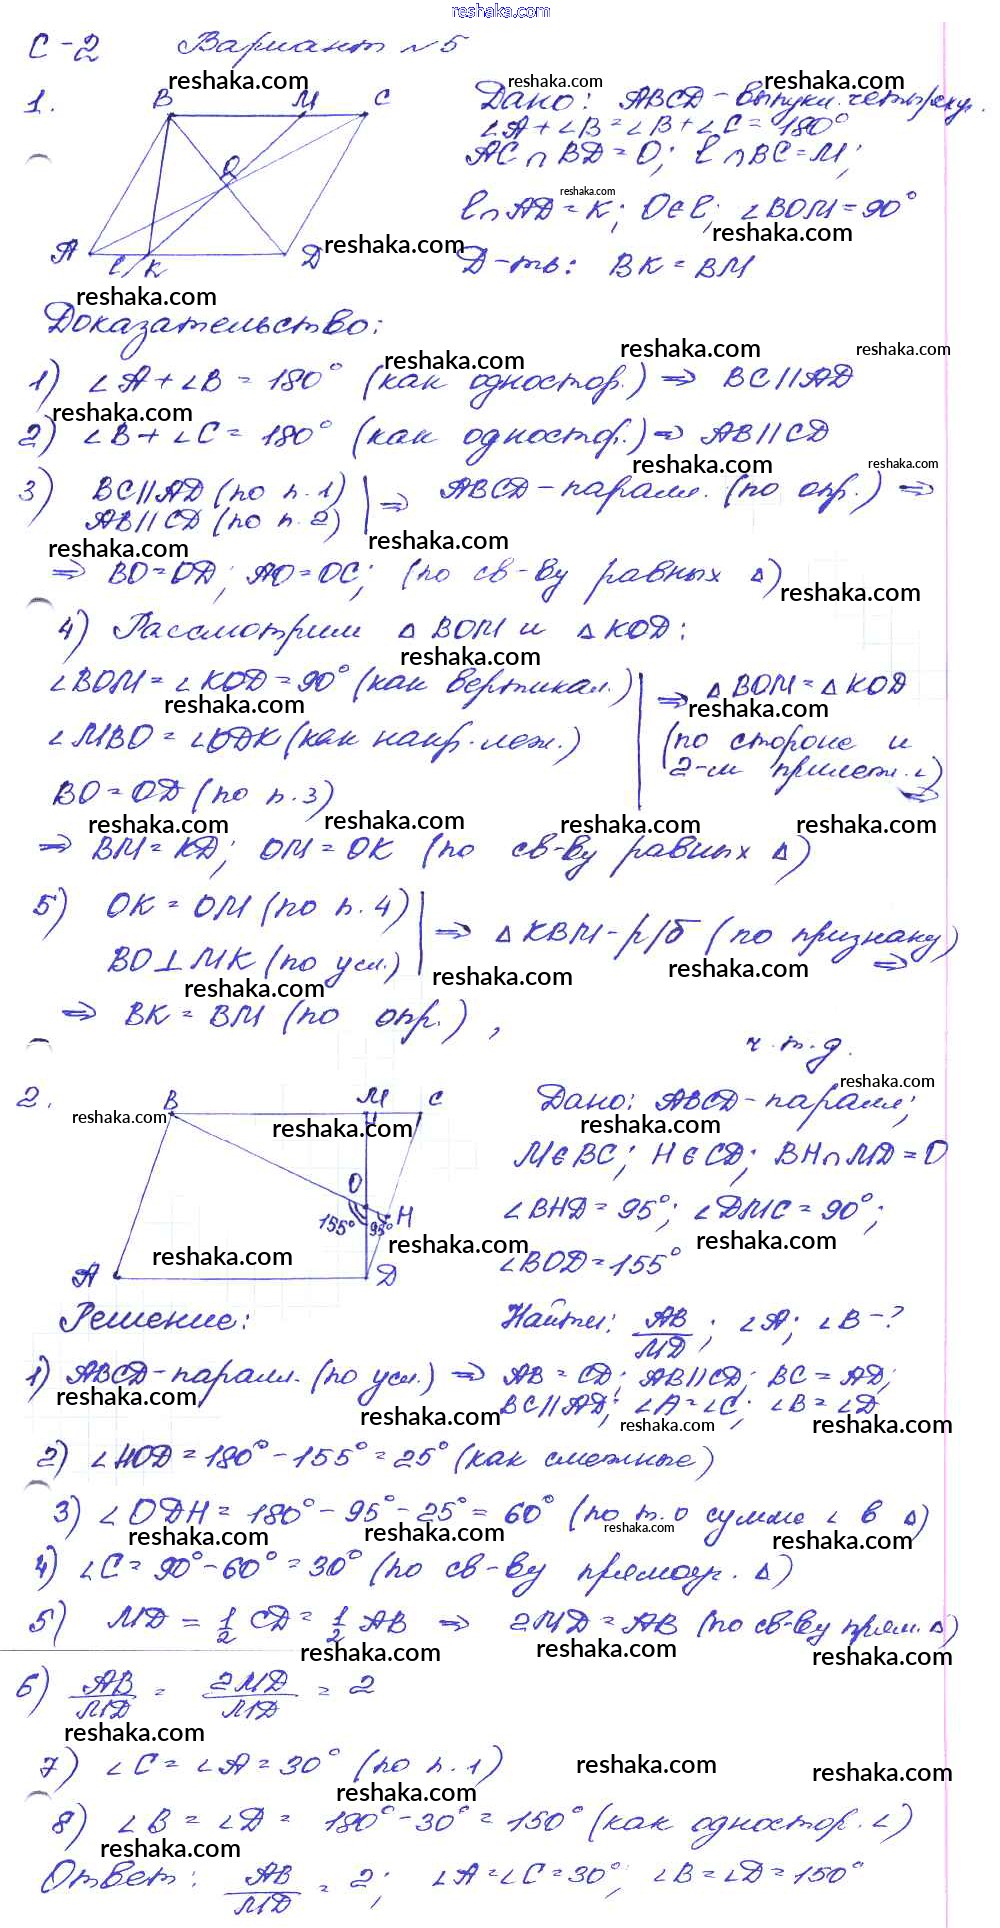 reshaka.com
С-2 Вариант №5
1.
B M C
O
A l K D
Дано: ABCD - выпукл. четыреху.
∠A + ∠B = ∠B + ∠C = 180°
AC ∩ BD = O; l ∩ BC = M;
l ∩ AD = K; O ∈ l; ∠BOM = 90°
Д-ть: BK = BM
Доказательство:
1) ∠A + ∠B = 180° (как одностор.) ⇒ BC || AD
2) ∠B + ∠C = 180° (как одностор.) ⇒ AB || CD
3) BC || AD (по п. 1)
AB || CD (по п. 2) ⇒ ABCD - паралл. (по опр.) ⇒
⇒ BO = OD; AO = OC; (по св-ву равных Δ)
4) Рассмотрим Δ BOM и Δ KOD:
∠BOM = ∠KOD = 90° (как вертикал.)
∠MBO = ∠ODK (как накр. леж.)
BO = OD (по п. 3)
⇒ Δ BOM = Δ KOD
(по стороне и
2-м прилеж. ∠) ⇒
⇒ BM = KD; OM = OK (по св-ву равных Δ)
5) OK = OM (по п. 4)
BO ⊥ MK (по усл.)
⇒ Δ KBM - р/б (по признаку) ⇒
⇒ BK = BM (по опр.),
ч.т.д.
2.
B M C
O
155° 95° H
A D
Дано: ABCD - паралл;
M ∈ BC; H ∈ CD; BH ∩ MD = O
∠BHD = 95°; ∠DMC = 90°;
∠BOD = 155°
Найти: AB/MD; ∠A; ∠B - ?
Решение:
1) ABCD - паралл. (по усл.) ⇒ AB = CD; AB || CD; BC = AD;
BC || AD; ∠A = ∠C; ∠B = ∠D
2) ∠HOD = 180° - 155° = 25° (как смежные)
3) ∠ODH = 180° - 95° - 25° = 60° (по т. о сумме ∠ в Δ)
4) ∠C = 90° - 60° = 30° (по св-ву прямоуг. Δ)
5) MD = 1/2 CD = 1/2 AB ⇒ 2MD = AB (по св-ву прям. Δ)
6) AB/MD = 2MD/MD = 2
7) ∠C = ∠A = 30° (по п. 1)
8) ∠B = ∠D = 180° - 30° = 150° (как одностор. ∠)
Ответ: AB/MD = 2; ∠A = ∠C = 30°; ∠B = ∠D = 150°